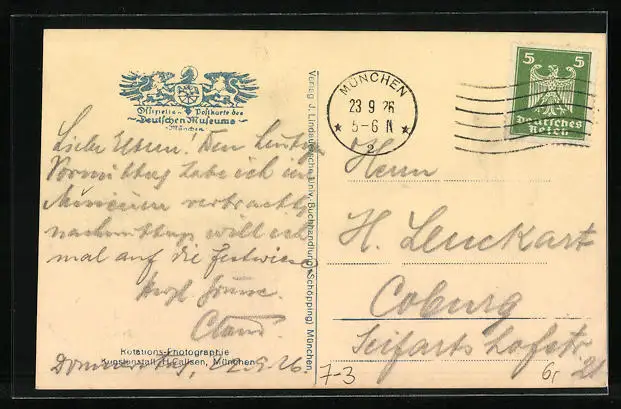 Offizielle Postkarte des
Deutschen Museums
München
Liebe Eltern! Den heutigen
Vormittag habe ich im
Museum verbracht,
nachmittags will ich
mal auf die Festwiese
Herzl. Grüsse.
Rotations-Photographie
Kunstanstalt H. Callsen, München
Donnerstag, 26.
Verlag J. Lindauersche Univ. Buchhandlung (Schöpping) München.
MÜNCHEN
23 9 26
5-6 N
2
5 5
Deutsches
Reich
Herrn
H. Leuckart
Coburg
Seifartshofstr
21
7-3
6,